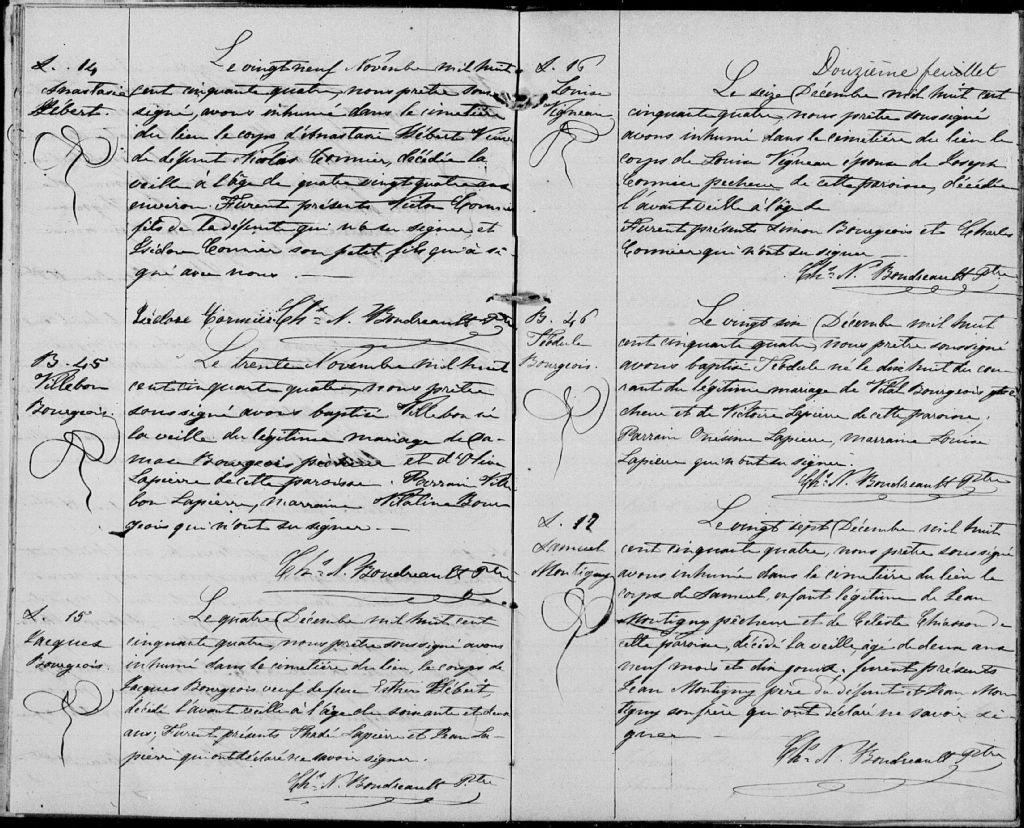 S. 14
Anastasie
Hébert.
Le vingt neuf Novembre mil huit
cent cinquante quatre, nous prêtre sous
signé, avons inhumé dans le cimetière
du lieu le corps d'Anastasie Hébert Veuve
de défunt Nicolas Cormier, décédée la
veille à l'âge de quatre vingt quatre ans
environ. Furent présents Victor Cormier
fils de la défunte qui n'a su signer, et
Isidore Cormier son petit fils qui a si-
gné avec nous. —
Isidore Cormier Chs. N. Boudreault Ptre
B. 45
Villebon
Bourgeois.
Le trente Novembre mil huit
cent cinquante quatre, nous prêtre
soussigné avons baptisé Villebon né
la veille du légitime mariage de Da-
mase Bourgeois pêcheur et d'Olive
Lapierre de cette paroisse. Parrain Ville
bon Lapierre, marraine Vitaline Bour
geois qui n'ont su signer. —
Chs. N. Boudreault Ptre
S. 15
Jacques
Bourgeois.
Le quatre Décembre mil huit cent
cinquante quatre, nous prêtre soussigné avons
inhumé dans le cimetière du lieu, le corps de
Jacques Bourgeois veuf de feue Esther Hébert,
décédé l'avant veille à l'âge de soixante et deux
ans; Furent présents Lapierre et Jean La
pierre qui ont déclaré ne savoir signer.
Chs. N. Boudreault Ptre
Douzième feuillet
S. 16
Louise
Vigneau
Le seize Décembre mil huit cent
cinquante quatre, nous prêtre soussigné
avons inhumé dans le cimetière du lieu le
corps de Louise Vigneau épouse de Joseph
Cormier pêcheur de cette paroisse, décédée
l'avant veille à l'âge de
Furent présents Simon Bourgeois et Charles
Cormier qui n'ont su signer —
Chs. N. Boudreault Ptre
B. 46
Tédule
Bourgeois.
Le vingt six Décembre mil huit
cent cinquante quatre, nous prêtre soussigné
avons baptisé Tédule né le dix huit du cou
rant du légitime mariage de Vital Bourgeois pê
cheur et de Victoire Lapierre de cette paroisse.
Parrain Onésime Lapierre, marraine Louise
Lapierre qui n'ont su signer.
Chs. N. Boudreault Ptre
S. 17
Samuel
Montigny
Le vingt sept Décembre mil huit
cent cinquante quatre, nous prêtre soussigné
avons inhumé dans le cimetière du lieu le
corps de Samuel, enfant légitime de Jean
Montigny pêcheur et de Céleste Chiasson de
cette paroisse, décédé la veille âgé de deux ans
neuf mois et dix jours. furent présents
Jean Montigny père du défunt et Jean Mon-
tigny son frère qui ont déclaré ne savoir si-
gner —
Chs. N. Boudreault Ptre